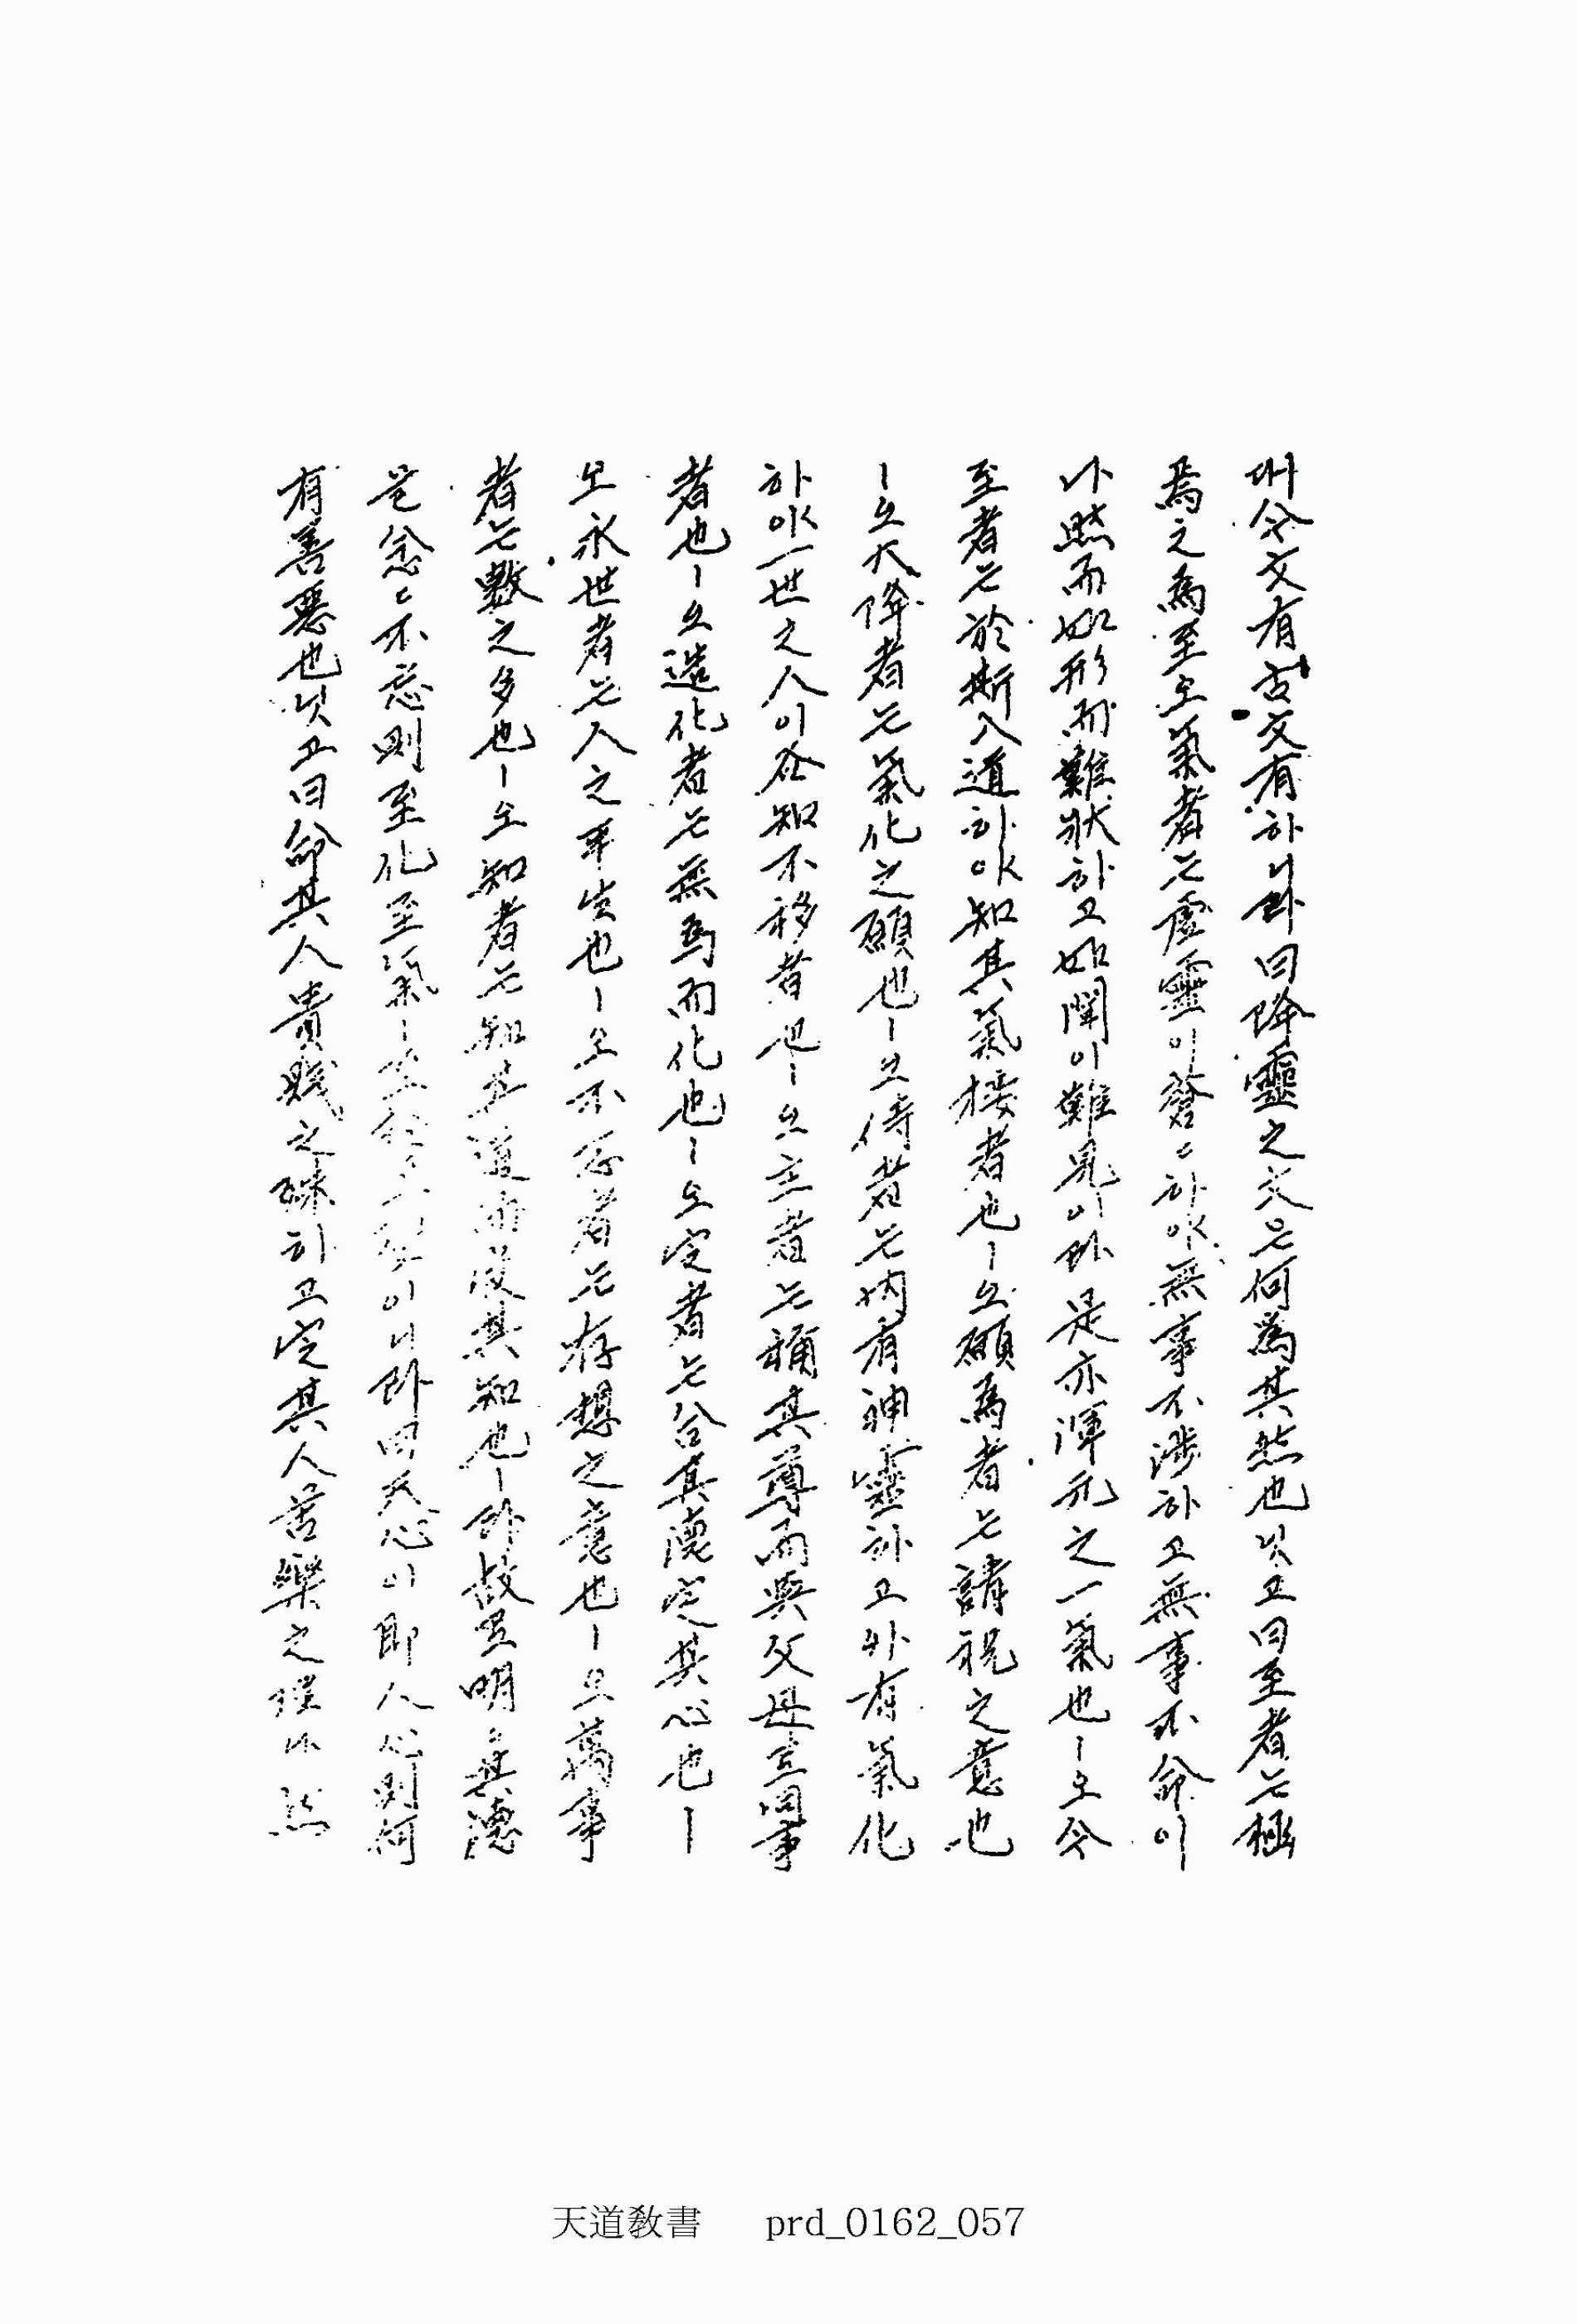 애今文有古文有하니라曰降靈之文은何爲其然也잇고曰至者는極
焉之爲至오氣者는虛靈이蒼々하야無事不涉하고無事不命이
나然而如形而難狀하고如聞이難見이라是亦渾元之一氣也ㅣ오今
至者는於斯入道하야知其氣接者也ㅣ오願爲者는請祝之意也
ㅣ오大降者는氣化之願也ㅣ오侍者는內有神靈하고外有氣化
하야一世之人이各知不移者也ㅣ오主者는稱其尊而與父母로同事
者也ㅣ오造化者는無爲而化也ㅣ오定者는合其德定其心也ㅣ
오永世者는人之平生也ㅣ오不忘者는存想之意也ㅣ오萬事
者는數之多也ㅣ오知者는知其道而受其知也ㅣ라故로明々其德
을念々不忘則至化至氣ㅣ至於至聖이니라曰天心이即人心則何
有善惡也잇고曰命其人貴賤之殊하고定其人苦樂之理나然
天道敎書 prd_0162_057